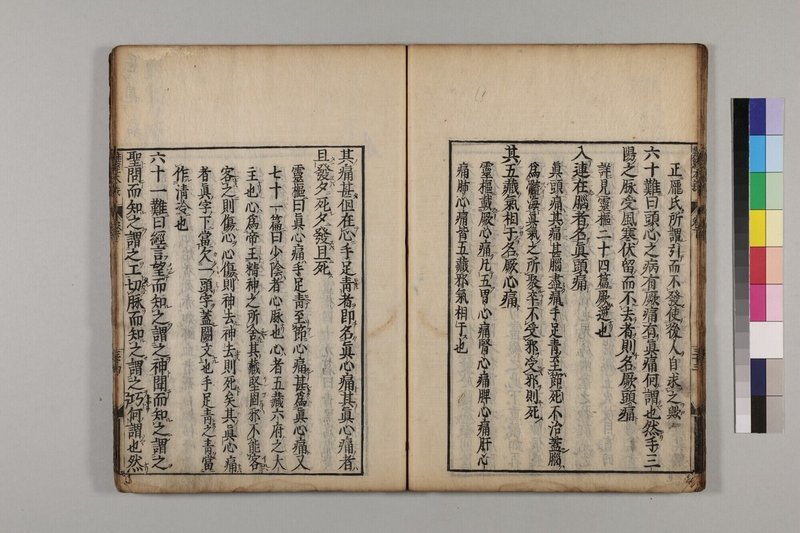 正龐氏所謂引而不發使後人自求之歟
六十難曰頭心之病有厥痛有眞痛何謂也然手三
陽之脉受風寒伏留而不去者則名厥頭痛
詳見靈樞二十四篇厥逆也
入連在腦者名眞頭痛
眞頭痛其痛甚腦盡痛手足青至節死不治蓋腦
爲髓海眞氣之所聚卒不受邪受邪則死
其五藏氣相干名厥心痛
靈樞載厥心痛凡五胃心痛腎心痛脾心痛肝心
痛肺心痛皆五藏邪氣相干也
其痛甚但在心手足青者即名眞心痛其眞心痛者
旦發夕死夕發旦死
靈樞曰眞心痛手足青至節心痛甚爲眞心痛又
七十一篇曰少陰者心脉也心者五藏六府之大
主也心爲帝王精神之所舍其藏堅固邪不能客
客之則傷心心傷則神去神去則死矣其眞心痛
者眞字下當欠一頭字蓋闕文也手足青之青當
作清冷也
六十一難曰經言望而知之謂之神聞而知之謂之
聖問而知之謂之工切脉而知之謂之巧何謂也然